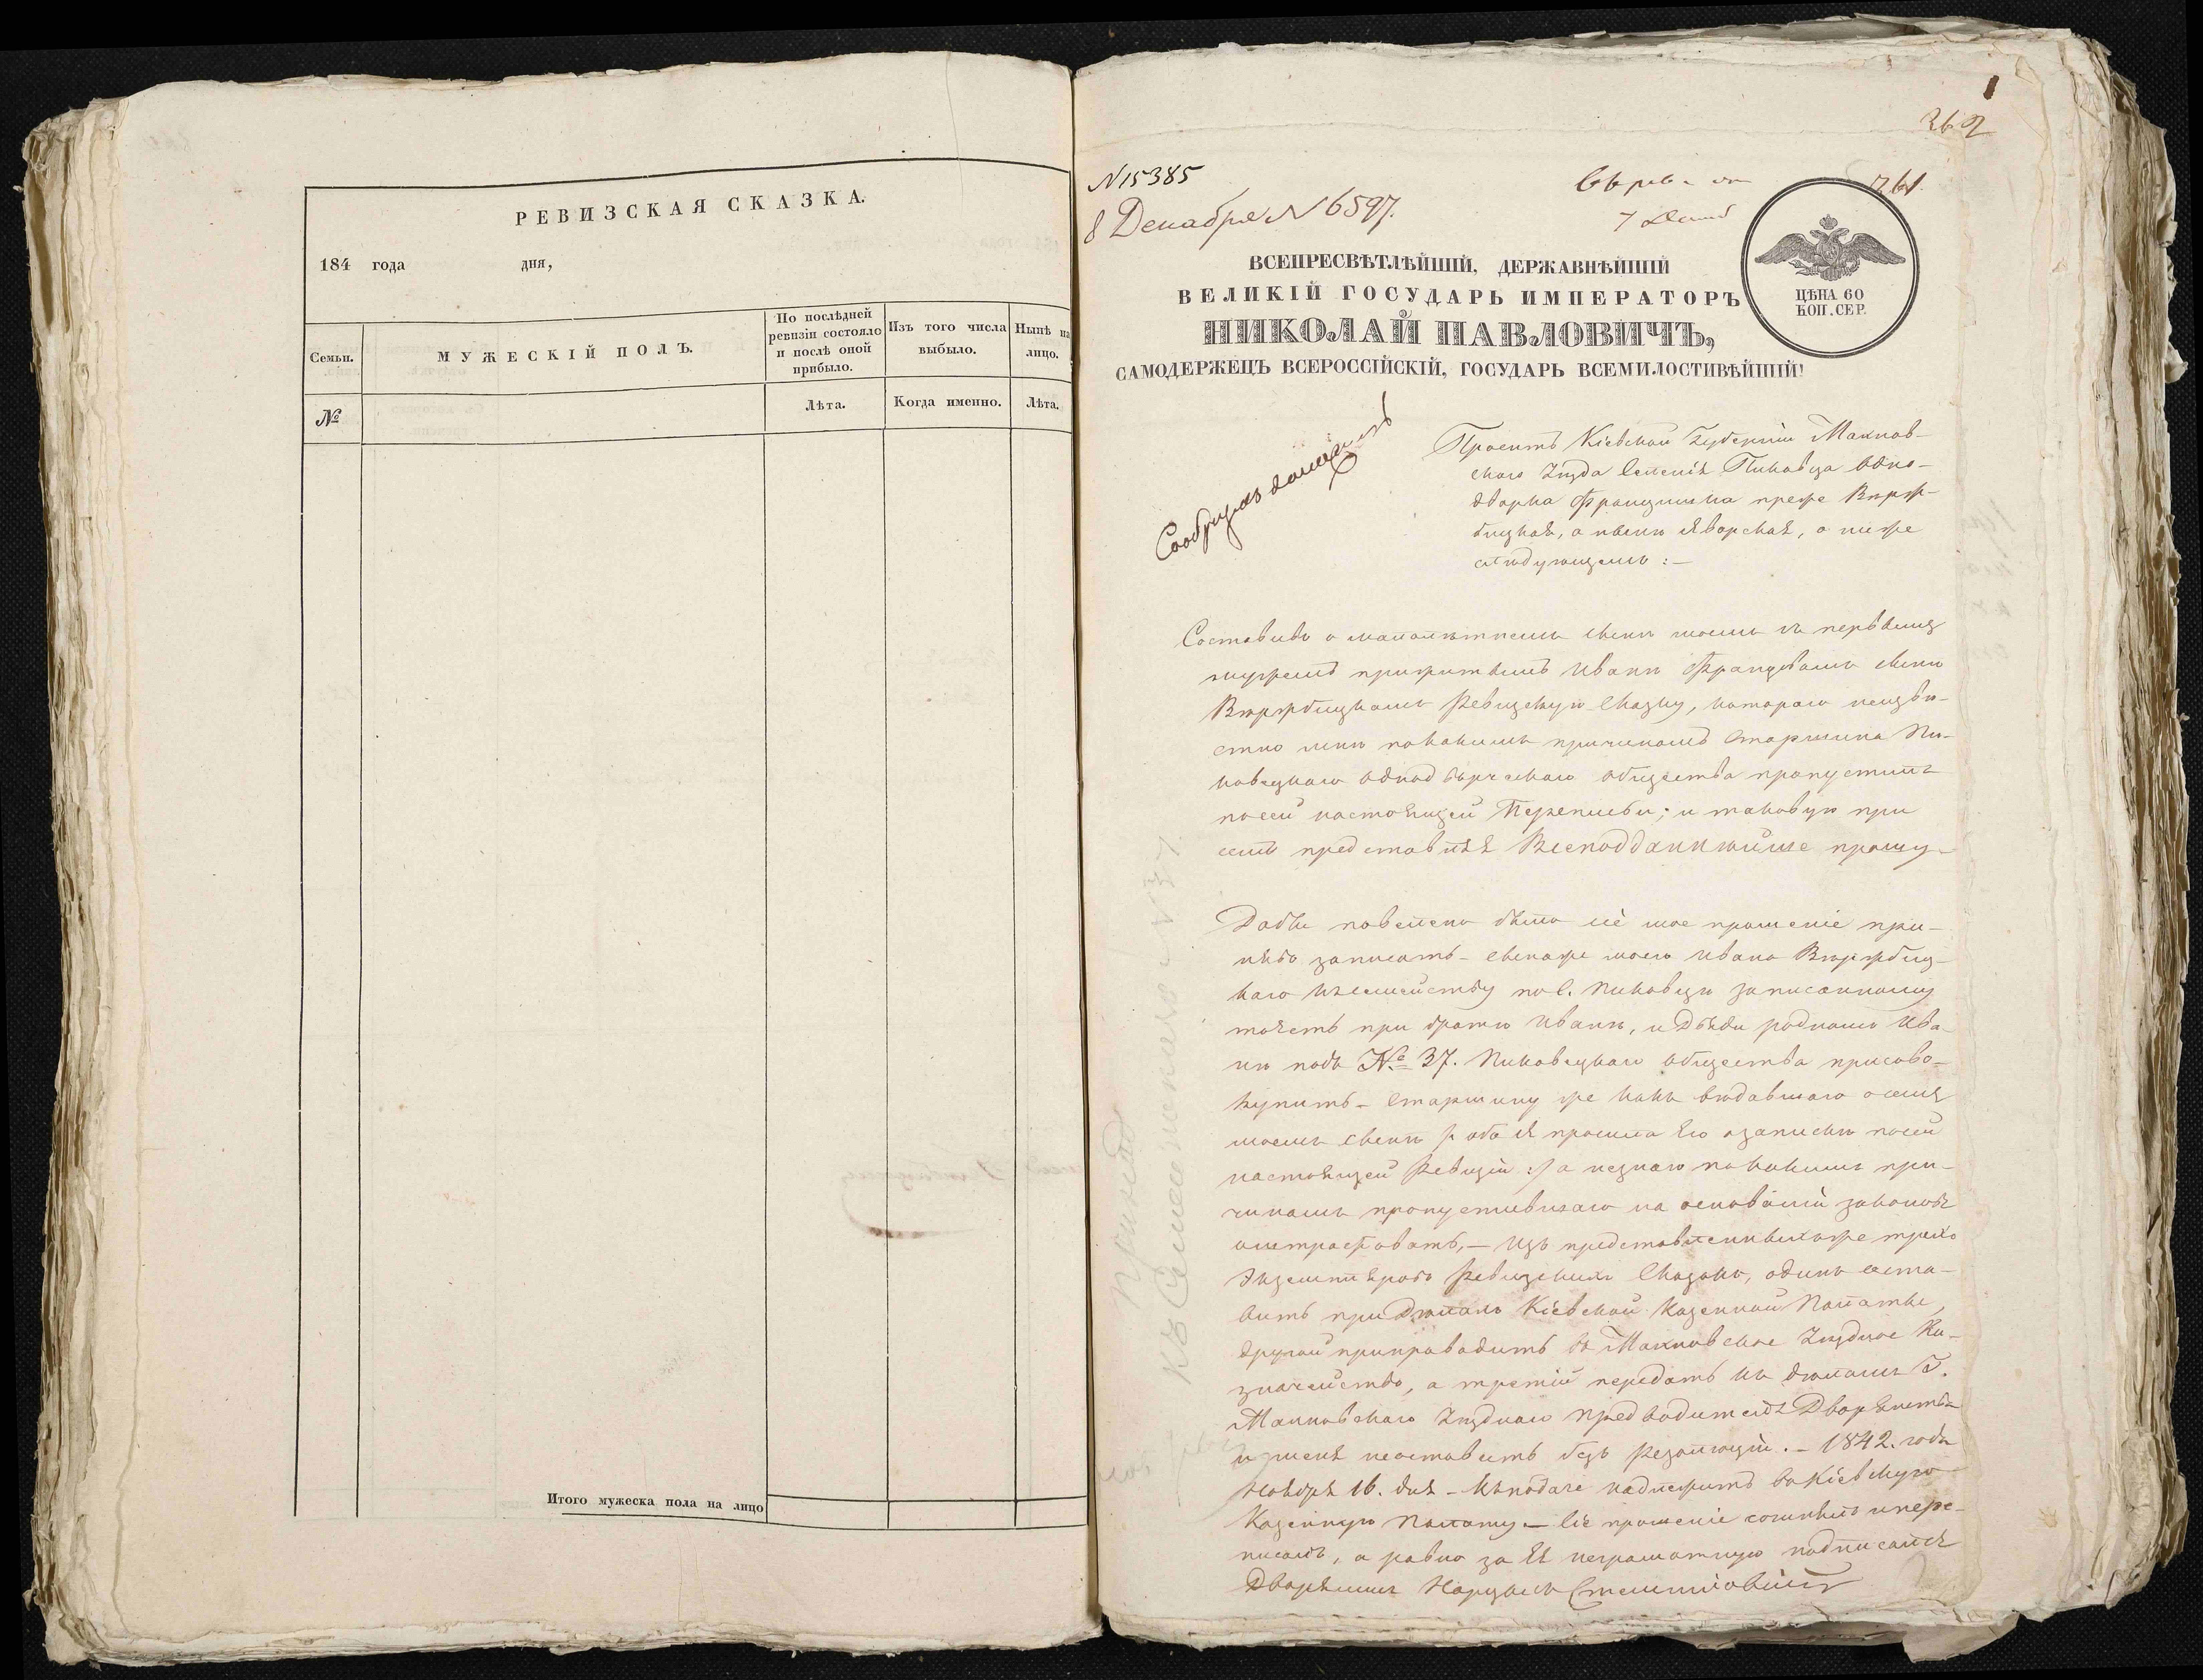 РЕВИЗСКАЯ СКАЗКА.
184 года дня,
Семьи.
МУЖЕСКІЙ ПОЛЪ.
По послѣдней ревизіи состояло и послѣ оной прибыло.
Изъ того числа выбыло.
Нынѣ на лицо.
№
Лѣта.
Когда именно.
Лѣта.
Итого мужеска пола на лицо
1
362
361.
N 15385
8 Декабря N 6597.
7 Декаб
ЦѢНА 60
КОП. СЕР.
ВСЕПРЕСВѢТЛѢЙШІЙ, ДЕРЖАВНѢЙШІЙ
ВЕЛИКІЙ ГОСУДАРЬ ИМПЕРАТОРЪ
НИКОЛАЙ ПАВЛОВИЧЪ,
САМОДЕРЖЕЦЪ ВСЕРОССІЙСКІЙ, ГОСУДАРЬ ВСЕМИЛОСТИВѢЙШІЙ!
Проситъ Кіевской Губерніи Махнов-
скаго Уѣзда Селенія Пиковца Одно-
дворка Францишка преже Вержб-
бицкая, а нынѣ Яворская, о ниже
слѣдующемъ:—
Составивъ о малолѣтнемъ сынѣ моемъ съ первымъ
мужемъ прижитымъ Иванѣ Францовомъ сынѣ
Вержбицкомъ Ревизскую Сказку, котораго неизвѣ-
стно мнѣ покакимъ причинамъ Старшина Пи-
ковецкаго Однодворческаго Общества пропустилъ
посей настоящей Переписи; и таковую при
семъ представляя Всеподданнѣйше прошу
Дабы повелено было сіе мое прошеніе при-
нявъ записать - сынаже моего Ивана Вержбиц-
каго къ семейству по С. Пиковцѣ записанному
тоесть при братѣ Иванѣ, и Дѣди родномъ Ива-
нѣ подъ №. 37. Пиковецкаго Общества присово-
купить - Старшину же какъ вѣдавшаго о семъ
моемъ сынѣ /: ибо я просила Его озаписки посей
настоящей Ревизіи :/ а незнаю покакимъ при-
чинамъ пропустившаго на основаніи законовъ
оштрафовать, — Изъ представленныхъже трехъ
Экземпляровъ Ревизскихъ Сказокъ, одинъ оста-
вить при Дѣлахъ Кіевской Казенной Палаты,
другой припроводить въ Махновское Уѣздное Ка-
значейство, а третій передать къ дѣламъ Г.
Махновскаго Уѣзднаго Предводителя Дворянства
и меня неоставить безъ Резолюціи. — 1842. года
Ноября 16. дня - Къподаче надлежитъ въ Кіевскую
Казенную Палату — Сіе прошеніе сочинялъ ипере-
писалъ, а равно за Её неграмотную подписался
Дворянинъ